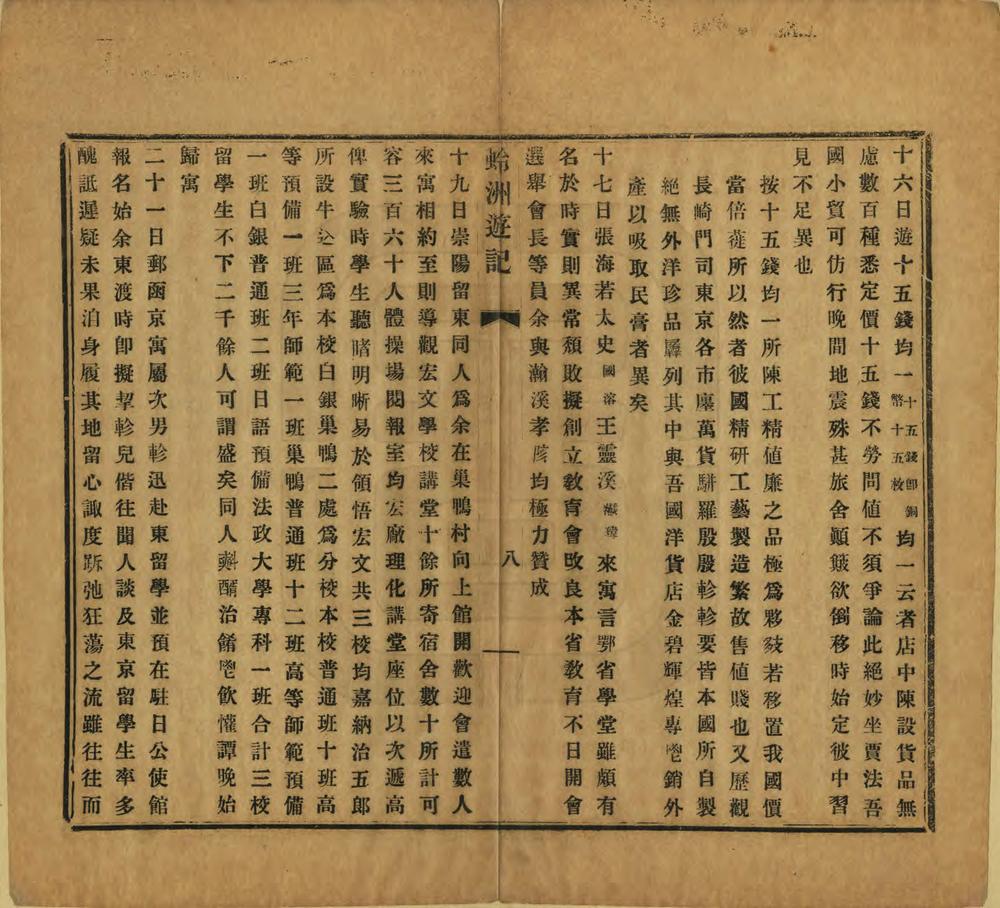 十六日遊十五錢均一十五錢卽銅幣十五枚均一云者店中陳設貨品無
慮數百種悉定價十五錢不勞問值不須爭論此絕妙坐賈法吾
國小貿可仿行晚間地震殊甚旅舍顚簸欲倒移時始定彼中習
見不足異也
按十五錢均一所陳工精値廉之品極爲夥頥若移置我國價
當倍蓰所以然者彼國精研工藝製造繁故售値賤也又歷觀
長崎門司東京各市廛萬貨駢羅殷殷軫軫要皆本國所自製
絕無外洋珍品羼列其中與吾國洋貨店金碧輝煌專銷外
產以吸取民膏者異矣
十七日張海若太史國溶王靈溪來寓言鄂省學堂雖頗有
名於時實則異常頹敗擬創立敎育會改良本省敎育不日開會
選舉會長等員余與瀚溪孝陔均極力贊成
蛉洲遊記
八
十九日崇陽留東同人爲余在巢鴨村向上館開歡迎會遣數人
來寓相約至則導觀宏文學校講堂十餘所寄宿舍數十所計可
容三百六十人體操場閱報室均宏廠理化講堂座位以次遞高
俾實驗時學生聽睹明晰易於領悟宏文共三校均嘉納治五郎
所設牛込區爲本校白銀巢鴨二處爲分校本校普通班十班高
等預備一班三年師範一班巢鴨普通班十二班高等師範預備
一班白銀普通班二班日語預備法政大學專科一班合計三校
留學生不下二千餘人可謂盛矣同人釃治餚飲懽譚晚始
歸寓
二十一日郵函京寓屬次男軫迅赴東留學並預在駐日公使館
報名始余東渡時卽擬挈軫兒偕往聞人談及東京留學生率多
醜詆遲疑未果泊身履其地留心諏度跅弛狂蕩之流雖往往而